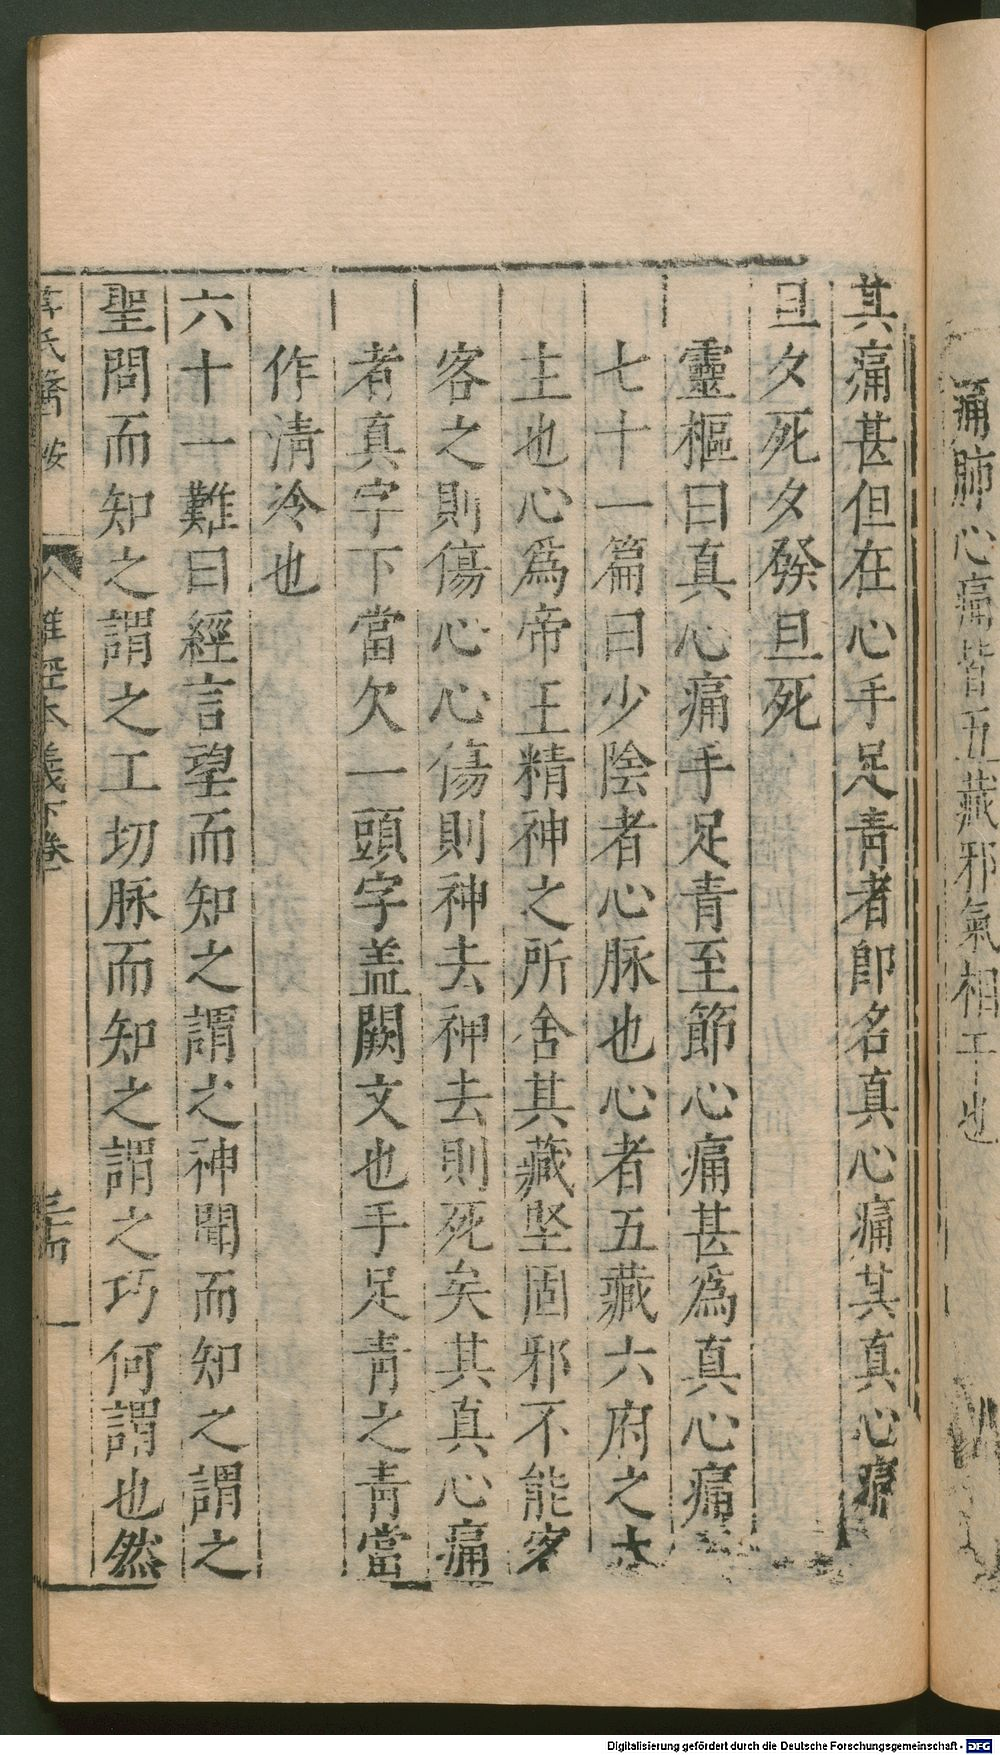 痛肺心痛皆五藏邪氣相干也
其痛甚但在心手足青者即名真心痛其真心痛
旦夕死夕發旦死
靈樞曰真心痛手足青至節心痛甚為真心痛
七十一篇曰少陰者心脉也心者五藏六府之大
主也心為帝王精神之所舍其藏堅固邪不能客
客之則傷心心傷則神去神去則死矣其真心痛
者真字下當欠一頭字盖闕文也手足青之青當
作清冷也
六十一難曰經言望而知之謂之神聞而知之謂之
聖問而知之謂之工切脉而知之謂之巧何謂也然
氏醫按 難經本義下卷
Digitalisierung gefördert durch die Deutsche Forschungsgemeinschaft - DFG